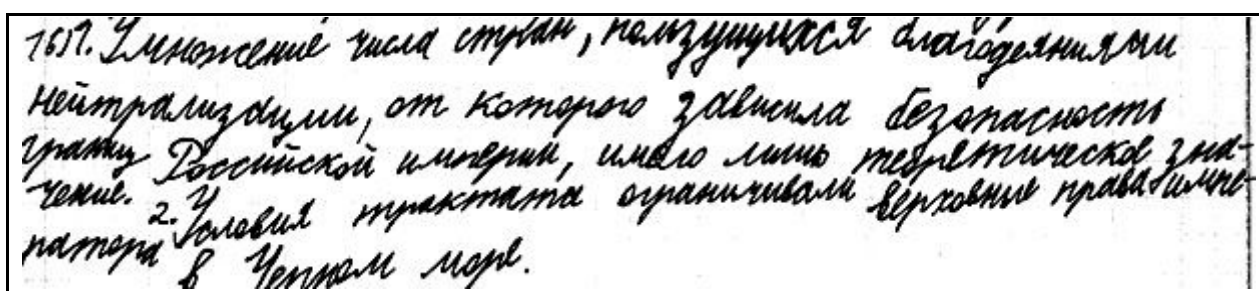 1617. Умножение числа стран, пользующихся благодеяниями
нейтрализации, от которого зависила безопасность
границ Российской империи, имело лишь теоретическое зна-
чение. 2. Условия трактата ограничивали верховные права импе-
ратора в Черном море.